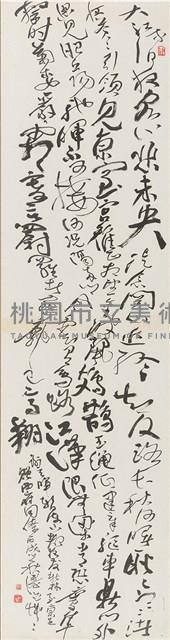 大江流日夜客心悲未央徒念關山近終知返路長秋河曙耿耿寒渚
夜蒼蒼引領見京室宮雉正相望金波麗鳷鵲玉繩低建章驅車鼎門外
思見昭丘陽馳暉不可接何況隔兩鄉風雲有鳥路江漢限無梁常恐鷹隼
擊時菊委嚴霜寄言罻羅者寥廓已高翔
桃園市立美術
TAOYUAN MUSEUM OF FINE